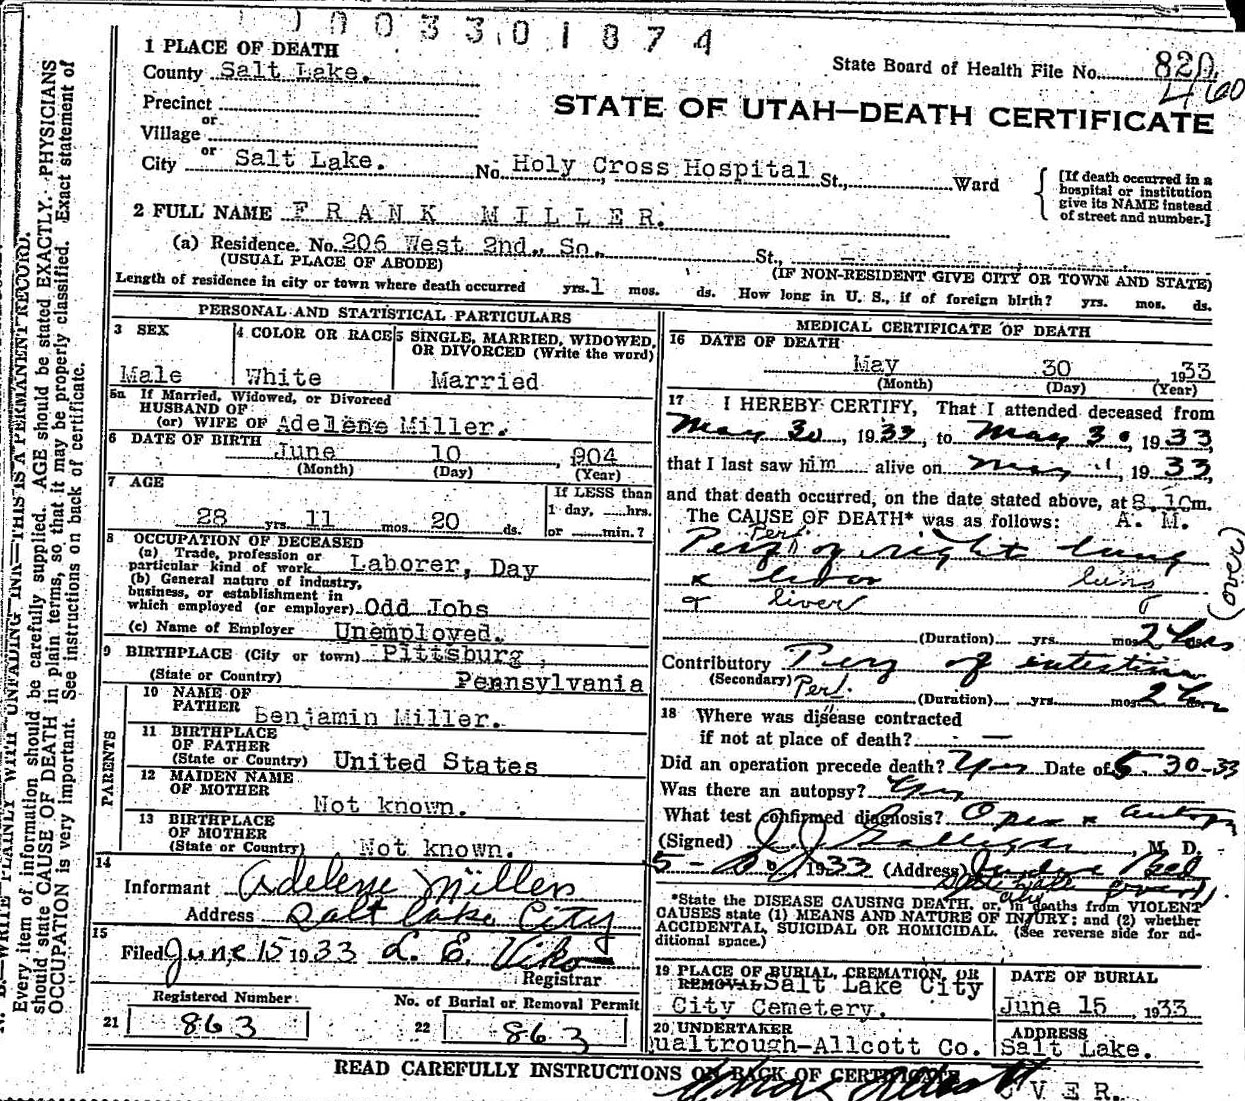 0 0 3 3 0 1 8 7 4
1 PLACE OF DEATH
County Salt Lake.
State Board of Health File No. 820
460
Precinct
or
Village
STATE OF UTAH—DEATH CERTIFICATE
City or Salt Lake. No. Holy Cross Hospital St., Ward
[If death occurred in a hospital or institution give its NAME instead of street and number.]
2 FULL NAME F R A N K M I L L E R.
(a) Residence. No. 206 West 2nd., So. St.,
(USUAL PLACE OF ABODE) (IF NON-RESIDENT GIVE CITY OR TOWN AND STATE)
Length of residence in city or town where death occurred yrs. 1 mos. ds. How long in U. S., if of foreign birth? yrs. mos. ds.
PERSONAL AND STATISTICAL PARTICULARS
3 SEX 4 COLOR OR RACE 5 SINGLE, MARRIED, WIDOWED, OR DIVORCED (Write the word)
Male White Married
5a If Married, Widowed, or Divorced
HUSBAND OF
(or) WIFE OF Adelene Miller.
6 DATE OF BIRTH
June 10, 904
(Month) (Day) (Year)
7 AGE
If LESS than
1 day, hrs.
28 yrs. 11 mos. 20 ds. or min.?
8 OCCUPATION OF DECEASED
(a) Trade, profession or
particular kind of work Laborer, Day
(b) General nature of industry,
business, or establishment in
which employed (or employer) Odd Jobs
(c) Name of Employer Unemployed.
9 BIRTHPLACE (City or town) Pittsburg,
(State or Country) Pennsylvania
PARENTS
10 NAME OF
FATHER Benjamin Miller.
11 BIRTHPLACE
OF FATHER
(State or Country) United States
12 MAIDEN NAME
OF MOTHER
Not known.
13 BIRTHPLACE
OF MOTHER
(State or Country) Not known.
14
Informant Adelene Miller
Address Salt Lake City
15
Filed June 15 1933 L. E. Viko
Registrar
Registered Number No. of Burial or Removal Permit
21 863 22 863
MEDICAL CERTIFICATE OF DEATH
16 DATE OF DEATH
May 30 1933
(Month) (Day) (Year)
17 I HEREBY CERTIFY, That I attended deceased from
May 30, 1933, to May 30, 1933,
that I last saw him alive on May 11, 1933,
and that death occurred, on the date stated above, at 8.10m.
The CAUSE OF DEATH* was as follows: A. M.
Perf.
Perf of right lung
lung
& liver
(over)
(Duration) yrs. mos. 2 hrs
Contributory Perf of intestine
(Secondary) Perf. (Duration) yrs. mos. 2 hrs
18 Where was disease contracted
if not at place of death? —
Did an operation precede death? Yes Date of 5-30-33
Was there an autopsy? Yes
What test confirmed diagnosis? Oper & autopsy
(Signed) M. D.
1933 (Address)
*State the DISEASE CAUSING DEATH, or, in deaths from VIOLENT
CAUSES state (1) MEANS AND NATURE OF INJURY; and (2) whether
ACCIDENTAL, SUICIDAL OR HOMICIDAL. (See reverse side for additional space.)
19 PLACE OF BURIAL, CREMATION, OR REMOVAL DATE OF BURIAL
Salt Lake City
City Cemetery. June 15, 1933
20 UNDERTAKER ADDRESS
ualtrough-Allcott Co. Salt Lake.
READ CAREFULLY INSTRUCTIONS ON BACK OF CERTIFICATE
O V E R.
Every item of information should be carefully supplied. AGE should be stated EXACTLY. PHYSICIANS
should state CAUSE OF DEATH in plain terms, so that it may be properly classified. Exact statement of
OCCUPATION is very important. See instructions on back of certificate.
B.—WRITE PLAINLY WITH UNFADING INK—THIS IS A PERMANENT RECORD.